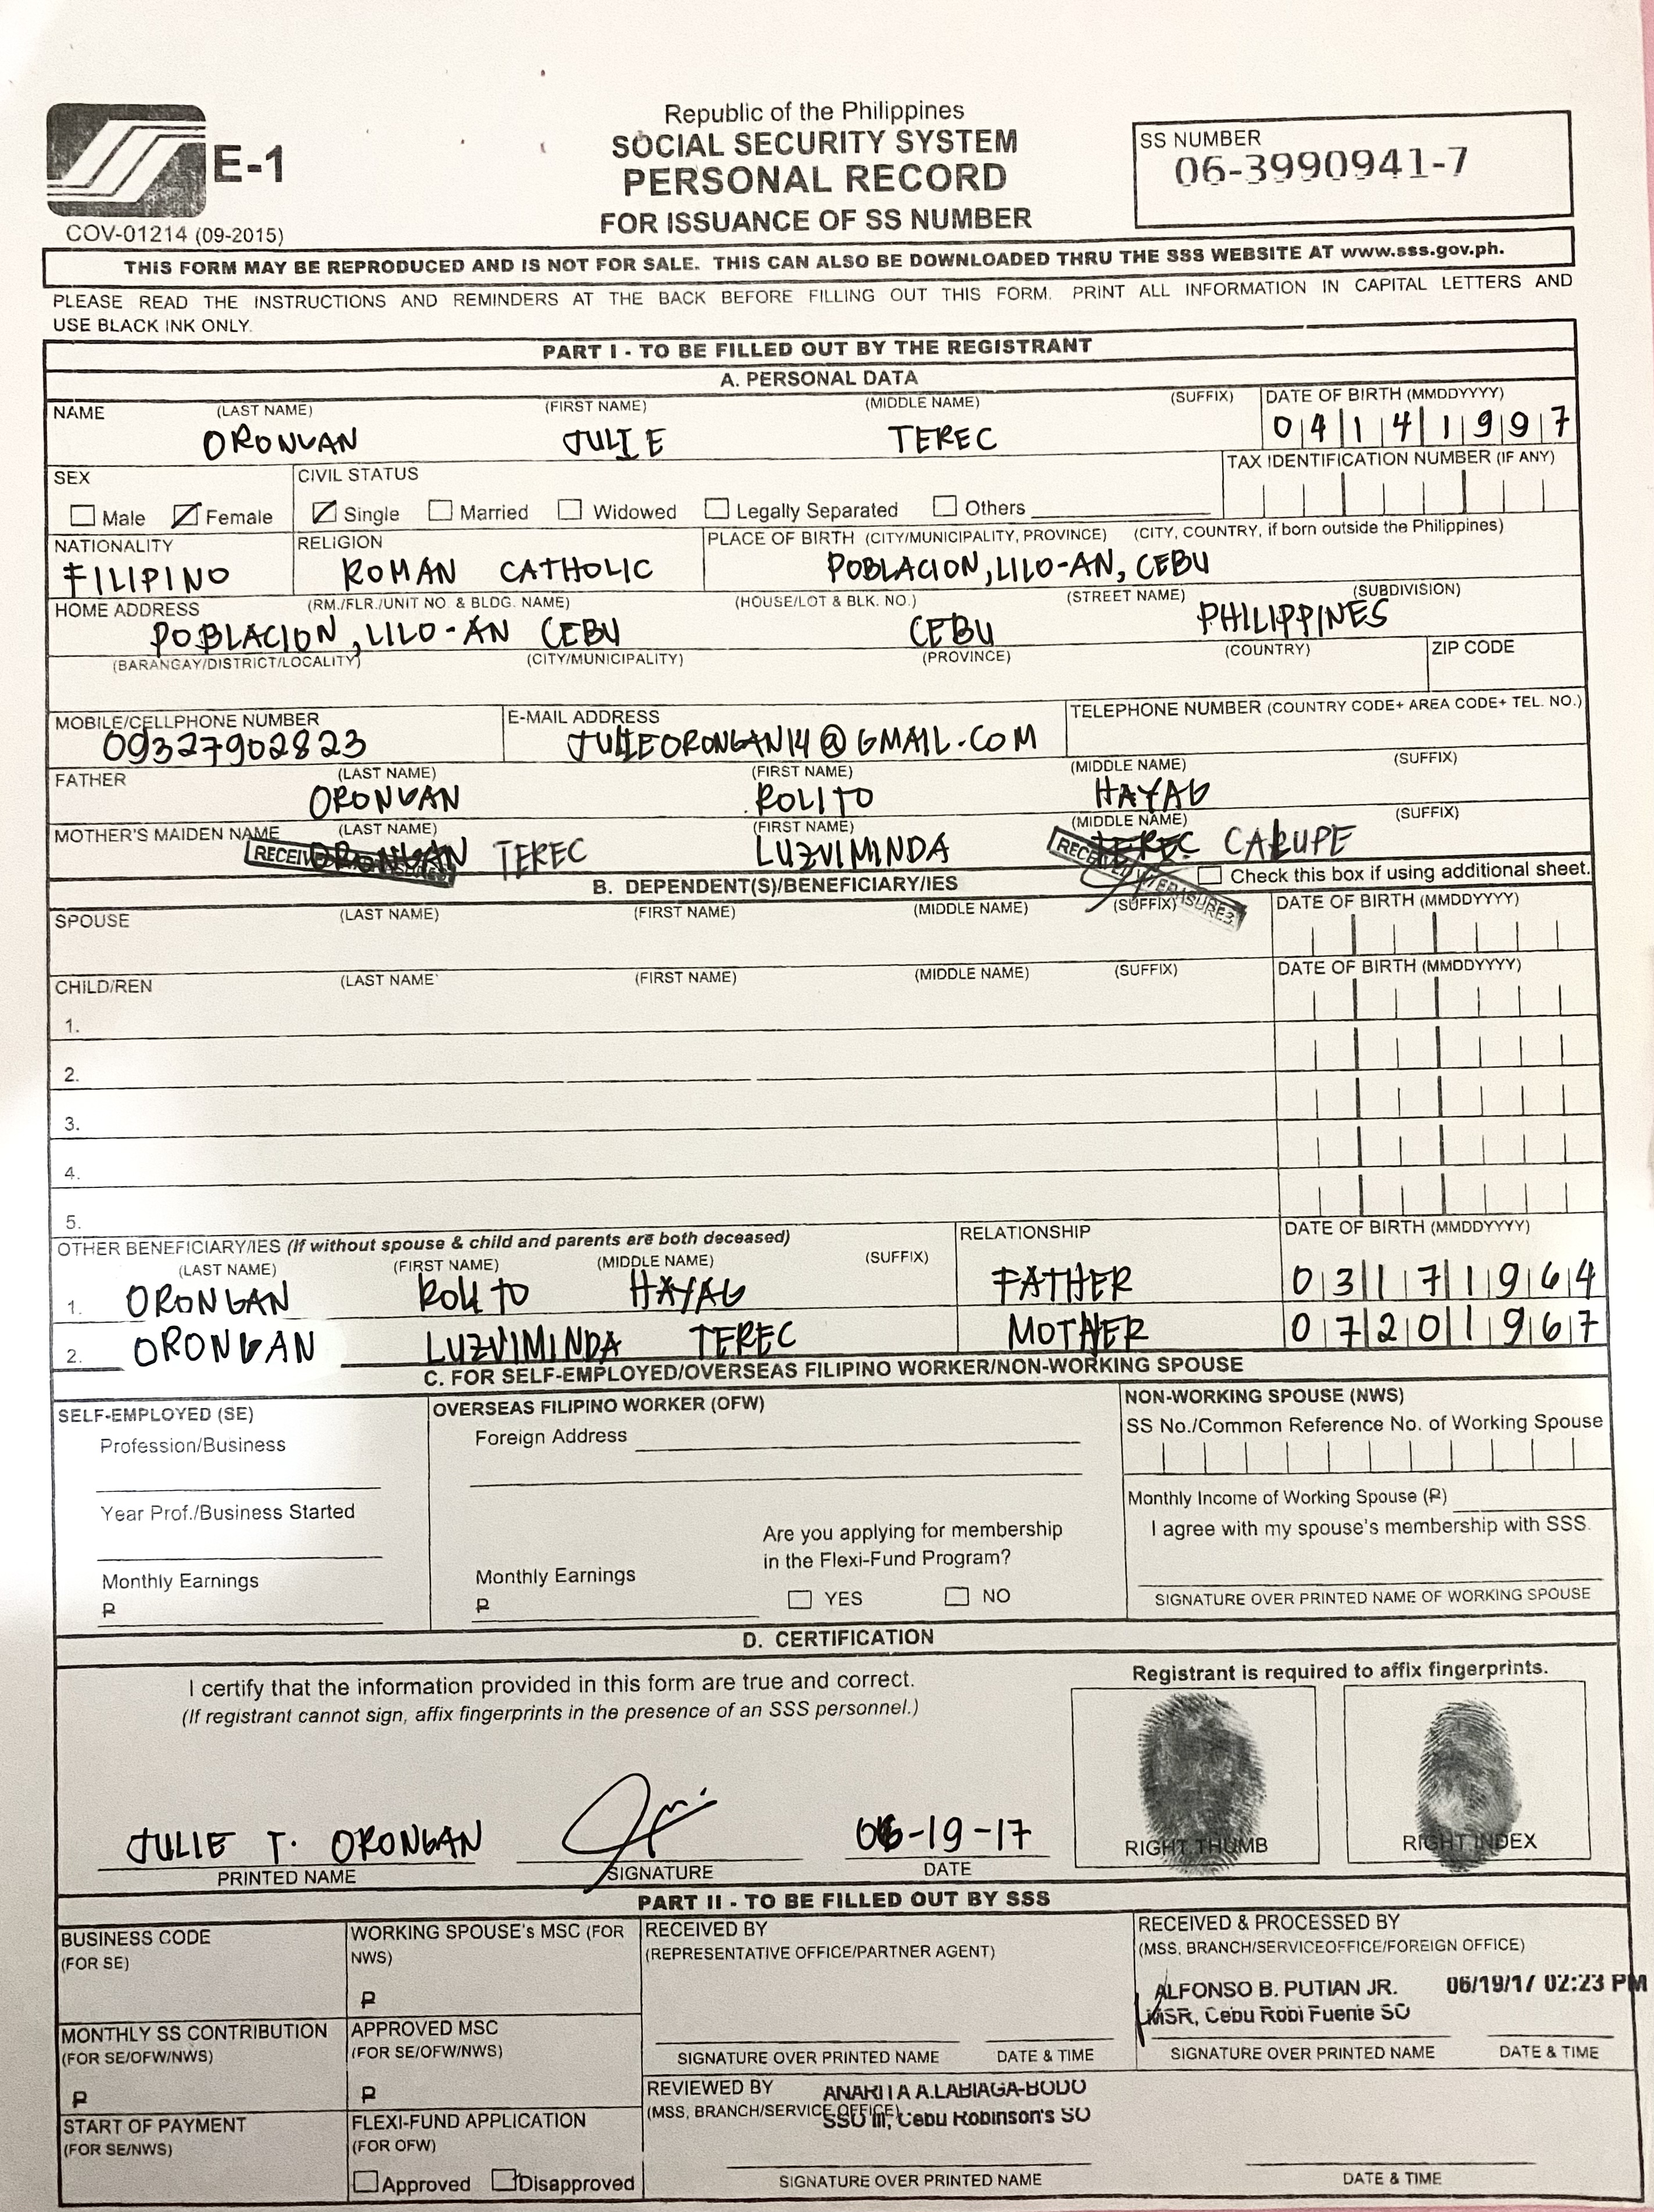 Republic of the Philippines
SOCIAL SECURITY SYSTEM
PERSONAL RECORD
FOR ISSUANCE OF SS NUMBER
E-1
COV-01214 (09-2015)
SS NUMBER
06-3990941-7
THIS FORM MAY BE REPRODUCED AND IS NOT FOR SALE. THIS CAN ALSO BE DOWNLOADED THRU THE SSS WEBSITE AT www.sss.gov.ph.
PLEASE READ THE INSTRUCTIONS AND REMINDERS AT THE BACK BEFORE FILLING OUT THIS FORM. PRINT ALL INFORMATION IN CAPITAL LETTERS AND
USE BLACK INK ONLY.
PART I - TO BE FILLED OUT BY THE REGISTRANT
A. PERSONAL DATA
NAME (LAST NAME) (FIRST NAME) (MIDDLE NAME) (SUFFIX) DATE OF BIRTH (MMDDYYYY)
ORONGAN JULIE TEREC 04141997
SEX CIVIL STATUS TAX IDENTIFICATION NUMBER (IF ANY)
Male Female Single Married Widowed Legally Separated Others
NATIONALITY RELIGION PLACE OF BIRTH (CITY/MUNICIPALITY, PROVINCE) (CITY, COUNTRY, if born outside the Philippines)
FILIPINO ROMAN CATHOLIC POBLACION, LILO-AN, CEBU
HOME ADDRESS (RM./FLR./UNIT NO. & BLDG. NAME) (HOUSE/LOT & BLK. NO.) (STREET NAME) (SUBDIVISION)
POBLACION, LILO-AN CEBU CEBU PHILIPPINES
(BARANGAY/DISTRICT/LOCALITY) (CITY/MUNICIPALITY) (PROVINCE) (COUNTRY) ZIP CODE
MOBILE/CELLPHONE NUMBER E-MAIL ADDRESS TELEPHONE NUMBER (COUNTRY CODE+ AREA CODE+ TEL. NO.)
09327902823 JULIEORONGAN14@GMAIL.COM
FATHER (LAST NAME) (FIRST NAME) (MIDDLE NAME) (SUFFIX)
ORONGAN ROLITO HAYAG
MOTHER'S MAIDEN NAME (LAST NAME) (FIRST NAME) (MIDDLE NAME) (SUFFIX)
ORONGAN TEREC LUZVIMINDA TEREC CARUPE
RECEIVED W/ ERASURES
Check this box if using additional sheet.
B. DEPENDENT(S)/BENEFICIARY/IES
SPOUSE (LAST NAME) (FIRST NAME) (MIDDLE NAME) (SUFFIX) DATE OF BIRTH (MMDDYYYY)
CHILD/REN (LAST NAME) (FIRST NAME) (MIDDLE NAME) (SUFFIX) DATE OF BIRTH (MMDDYYYY)
1.
2.
3.
4.
5.
OTHER BENEFICIARY/IES (If without spouse & child and parents are both deceased) RELATIONSHIP DATE OF BIRTH (MMDDYYYY)
(LAST NAME) (FIRST NAME) (MIDDLE NAME) (SUFFIX)
1. ORONGAN ROLITO HAYAG FATHER 03171964
2. ORONGAN LUZVIMINDA TEREC MOTHER 07201967
C. FOR SELF-EMPLOYED/OVERSEAS FILIPINO WORKER/NON-WORKING SPOUSE
SELF-EMPLOYED (SE)
Profession/Business
Year Prof./Business Started
Monthly Earnings
₱
OVERSEAS FILIPINO WORKER (OFW)
Foreign Address
Monthly Earnings
₱
Are you applying for membership
in the Flexi-Fund Program?
YES NO
NON-WORKING SPOUSE (NWS)
SS No./Common Reference No. of Working Spouse
Monthly Income of Working Spouse (₱)
I agree with my spouse's membership with SSS.
SIGNATURE OVER PRINTED NAME OF WORKING SPOUSE
D. CERTIFICATION
I certify that the information provided in this form are true and correct.
(If registrant cannot sign, affix fingerprints in the presence of an SSS personnel.)
Registrant is required to affix fingerprints.
JULIE T. ORONGAN 06-19-17
PRINTED NAME SIGNATURE DATE
RIGHT THUMB RIGHT INDEX
PART II - TO BE FILLED OUT BY SSS
BUSINESS CODE
(FOR SE)
WORKING SPOUSE's MSC (FOR
NWS)
₱
MONTHLY SS CONTRIBUTION
(FOR SE/OFW/NWS)
₱
APPROVED MSC
(FOR SE/OFW/NWS)
₱
START OF PAYMENT
(FOR SE/NWS)
FLEXI-FUND APPLICATION
(FOR OFW)
Approved Disapproved
RECEIVED BY
(REPRESENTATIVE OFFICE/PARTNER AGENT)
SIGNATURE OVER PRINTED NAME DATE & TIME
RECEIVED & PROCESSED BY
(MSS, BRANCH/SERVICEOFFICE/FOREIGN OFFICE)
ALFONSO B. PUTIAN JR. 06/19/17 02:23 PM
MSR, Cebu Robi Fuente SO
SIGNATURE OVER PRINTED NAME DATE & TIME
REVIEWED BY
(MSS, BRANCH/SERVICE OFFICE)
ANARITA A.LABIAGA-BODO
SSO III, Cebu Robinson's SO
SIGNATURE OVER PRINTED NAME DATE & TIME